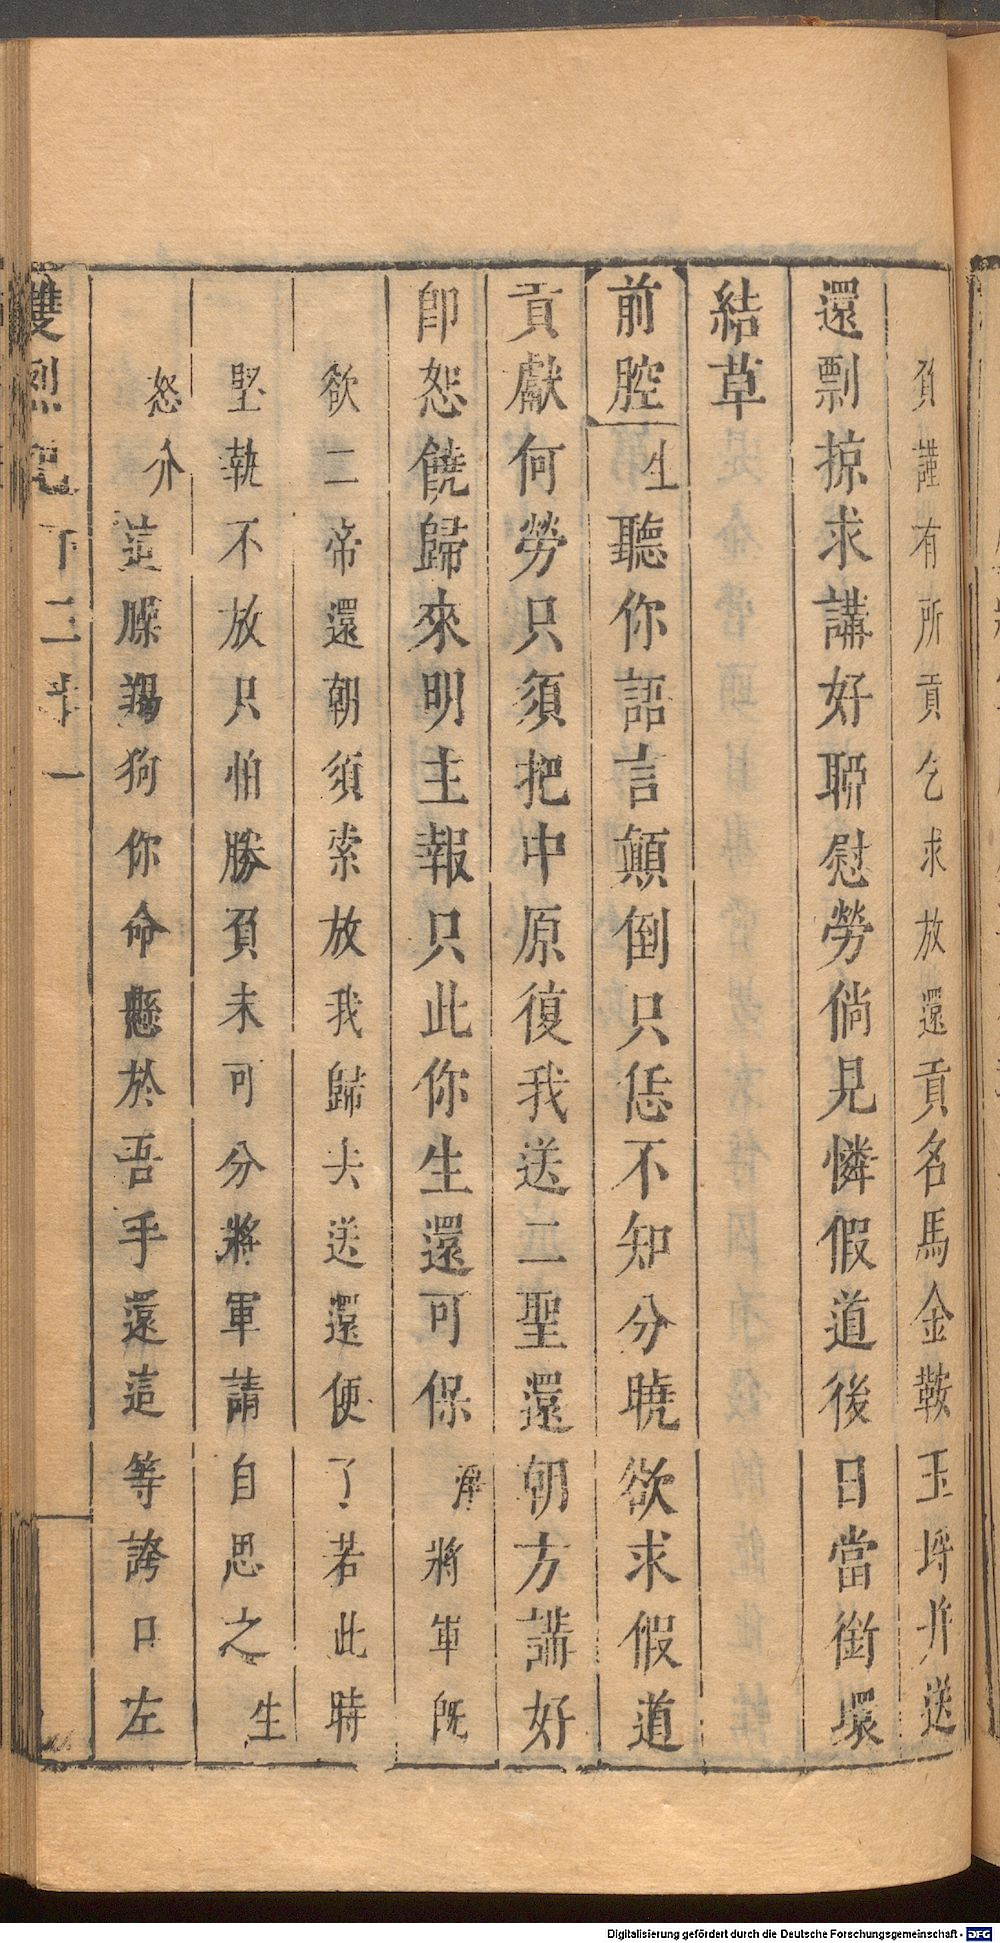 負謹有所貢乞求放還貢名馬金鞍玉埒并送
還剽掠求講好聊慰勞倘見憐假道後日當銜環
結草
前腔生聽你語言顛倒只恁不知分曉欲求假道
貢獻何勞只須把中原復我送二聖還朝方講好
卽恕饒歸來明主報只此你生還可保 將軍既
欲二帝還朝須索放我歸去送還便了若此時
堅執不放只怕勝負未可分將軍請自思之生
怒介這臊羯狗你命懸於吾手還這等誇口左
雙烈記 下二 一
Digitalisierung gefördert durch die Deutsche Forschungsgemeinschaft - DFG